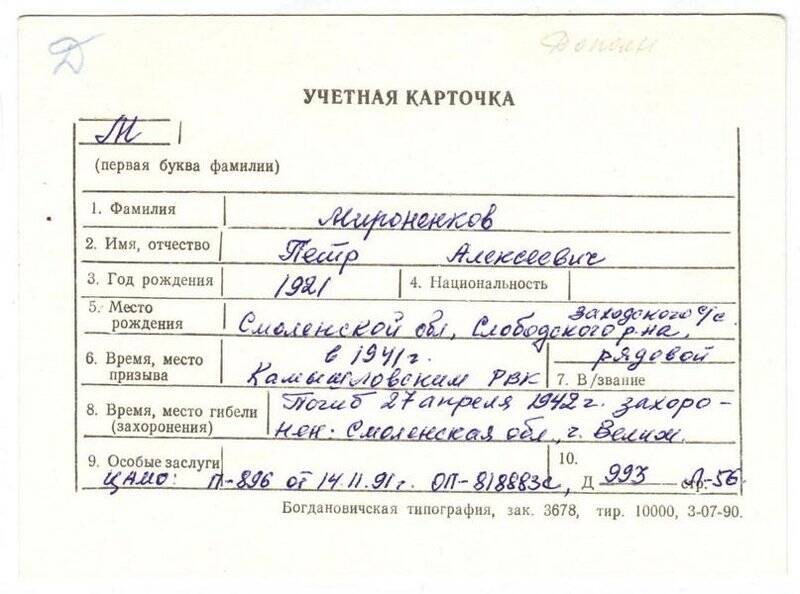 Д
Дополн
УЧЕТНАЯ КАРТОЧКА
М
(первая буква фамилии)
1. Фамилия Мироненков
2. Имя, отчество Петр Алексеевич
3. Год рождения 1921 4. Национальность
5. Место рождения Смоленской обл, Слободского р-на, Заходского с/с.
6. Время, место призыва в 1941 г. Камышловским РВК
7. В/звание рядовой
8. Время, место гибели (захоронения) Погиб 27 апреля 1942 г. захоро-
нен: Смоленская обл, г. Велиж.
9. Особые заслуги ЦАМО: П-896 от 14.11.91г. ОП-818883с,
10. Д 993 стр. Л-56
Богдановичская типография, зак. 3678, тир. 10000, 3-07-90.